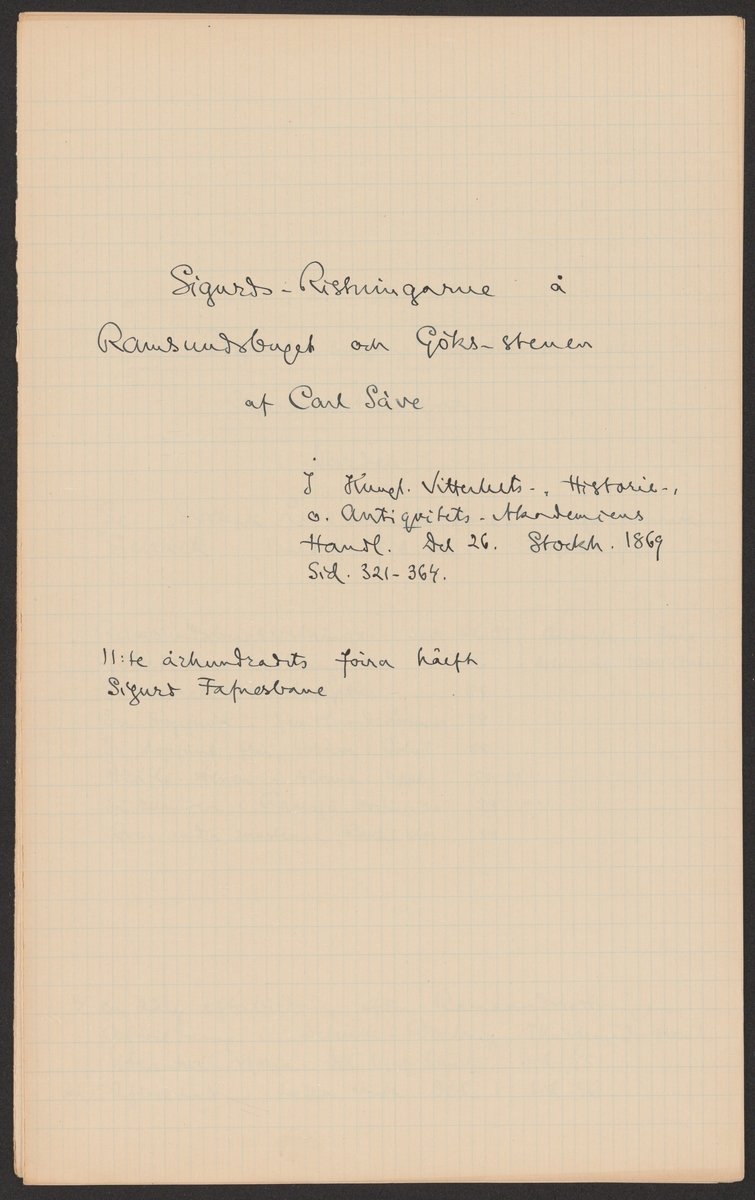 Sigurds-Ristningarne å
Ramsundsberget och Göks-stenen
af Carl Säve
I Kungl. Vitterhets-, Historie-,
o. Antiqvitets-Akademiens
Handl. Del 26. Stockh. 1869
Sid. 321-364.
11:te århundradets förra hälft
Sigurd Fafnesbane